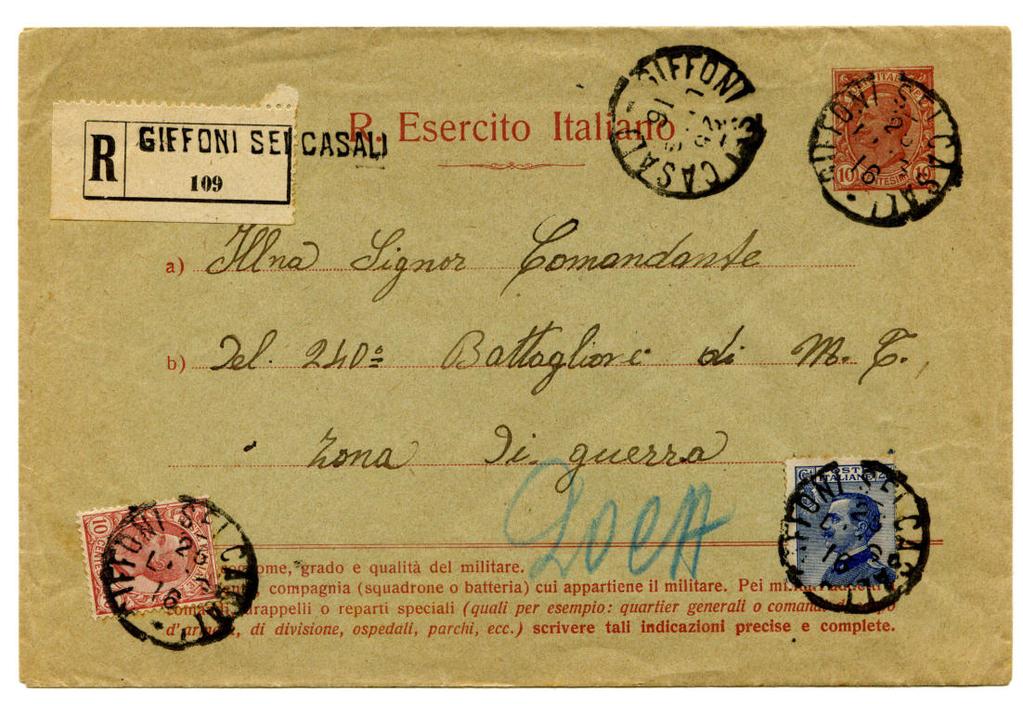 R. Esercito Italiano
GIFFONI SEI CASALI
R
GIFFONI SEI CASALI
109
GIFFONI SEI CASALI
10 10
a) Illna Signor Comandante
b) Del. 240º Battaglione di M. T.,
Zona Di guerra
POSTE
ITALIANE
GIFFONI SEI CASALI
10 CENT
GIFFONI SEI CASALI
nome, grado e qualità del militare.
compagnia (squadrone o batteria) cui appartiene il militare. Pei
drappelli o reparti speciali (quali per esempio: quartier generali o
d'armata, di divisione, ospedali, parchi, ecc.) scrivere tali indicazioni precise e complete.